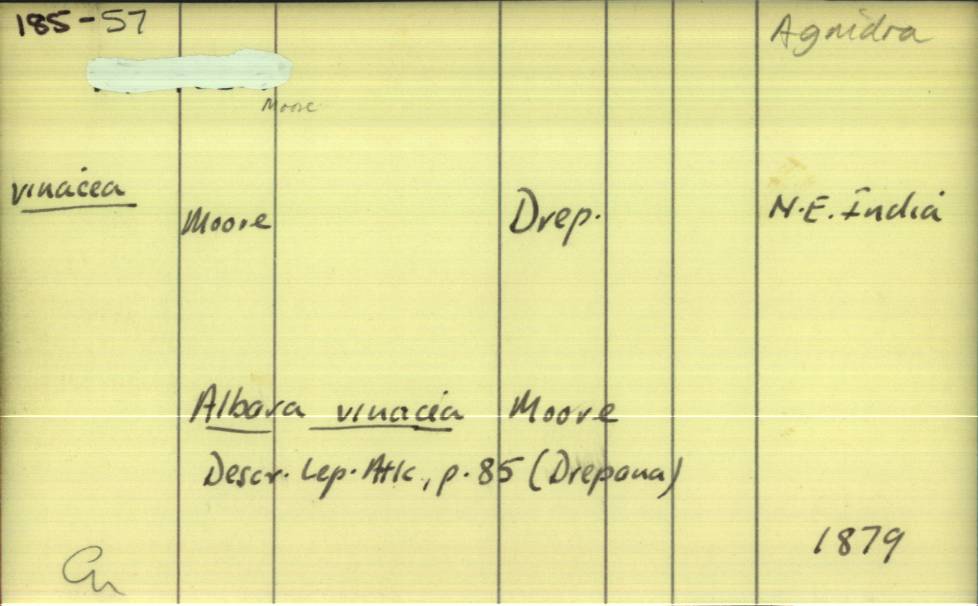 185-57
Agnidra
Moore
vinacea
Moore
Drep.
N.E. India
Albara vinacea Moore
Descr. Lep. Atk., p. 85 (Drepana)
1879